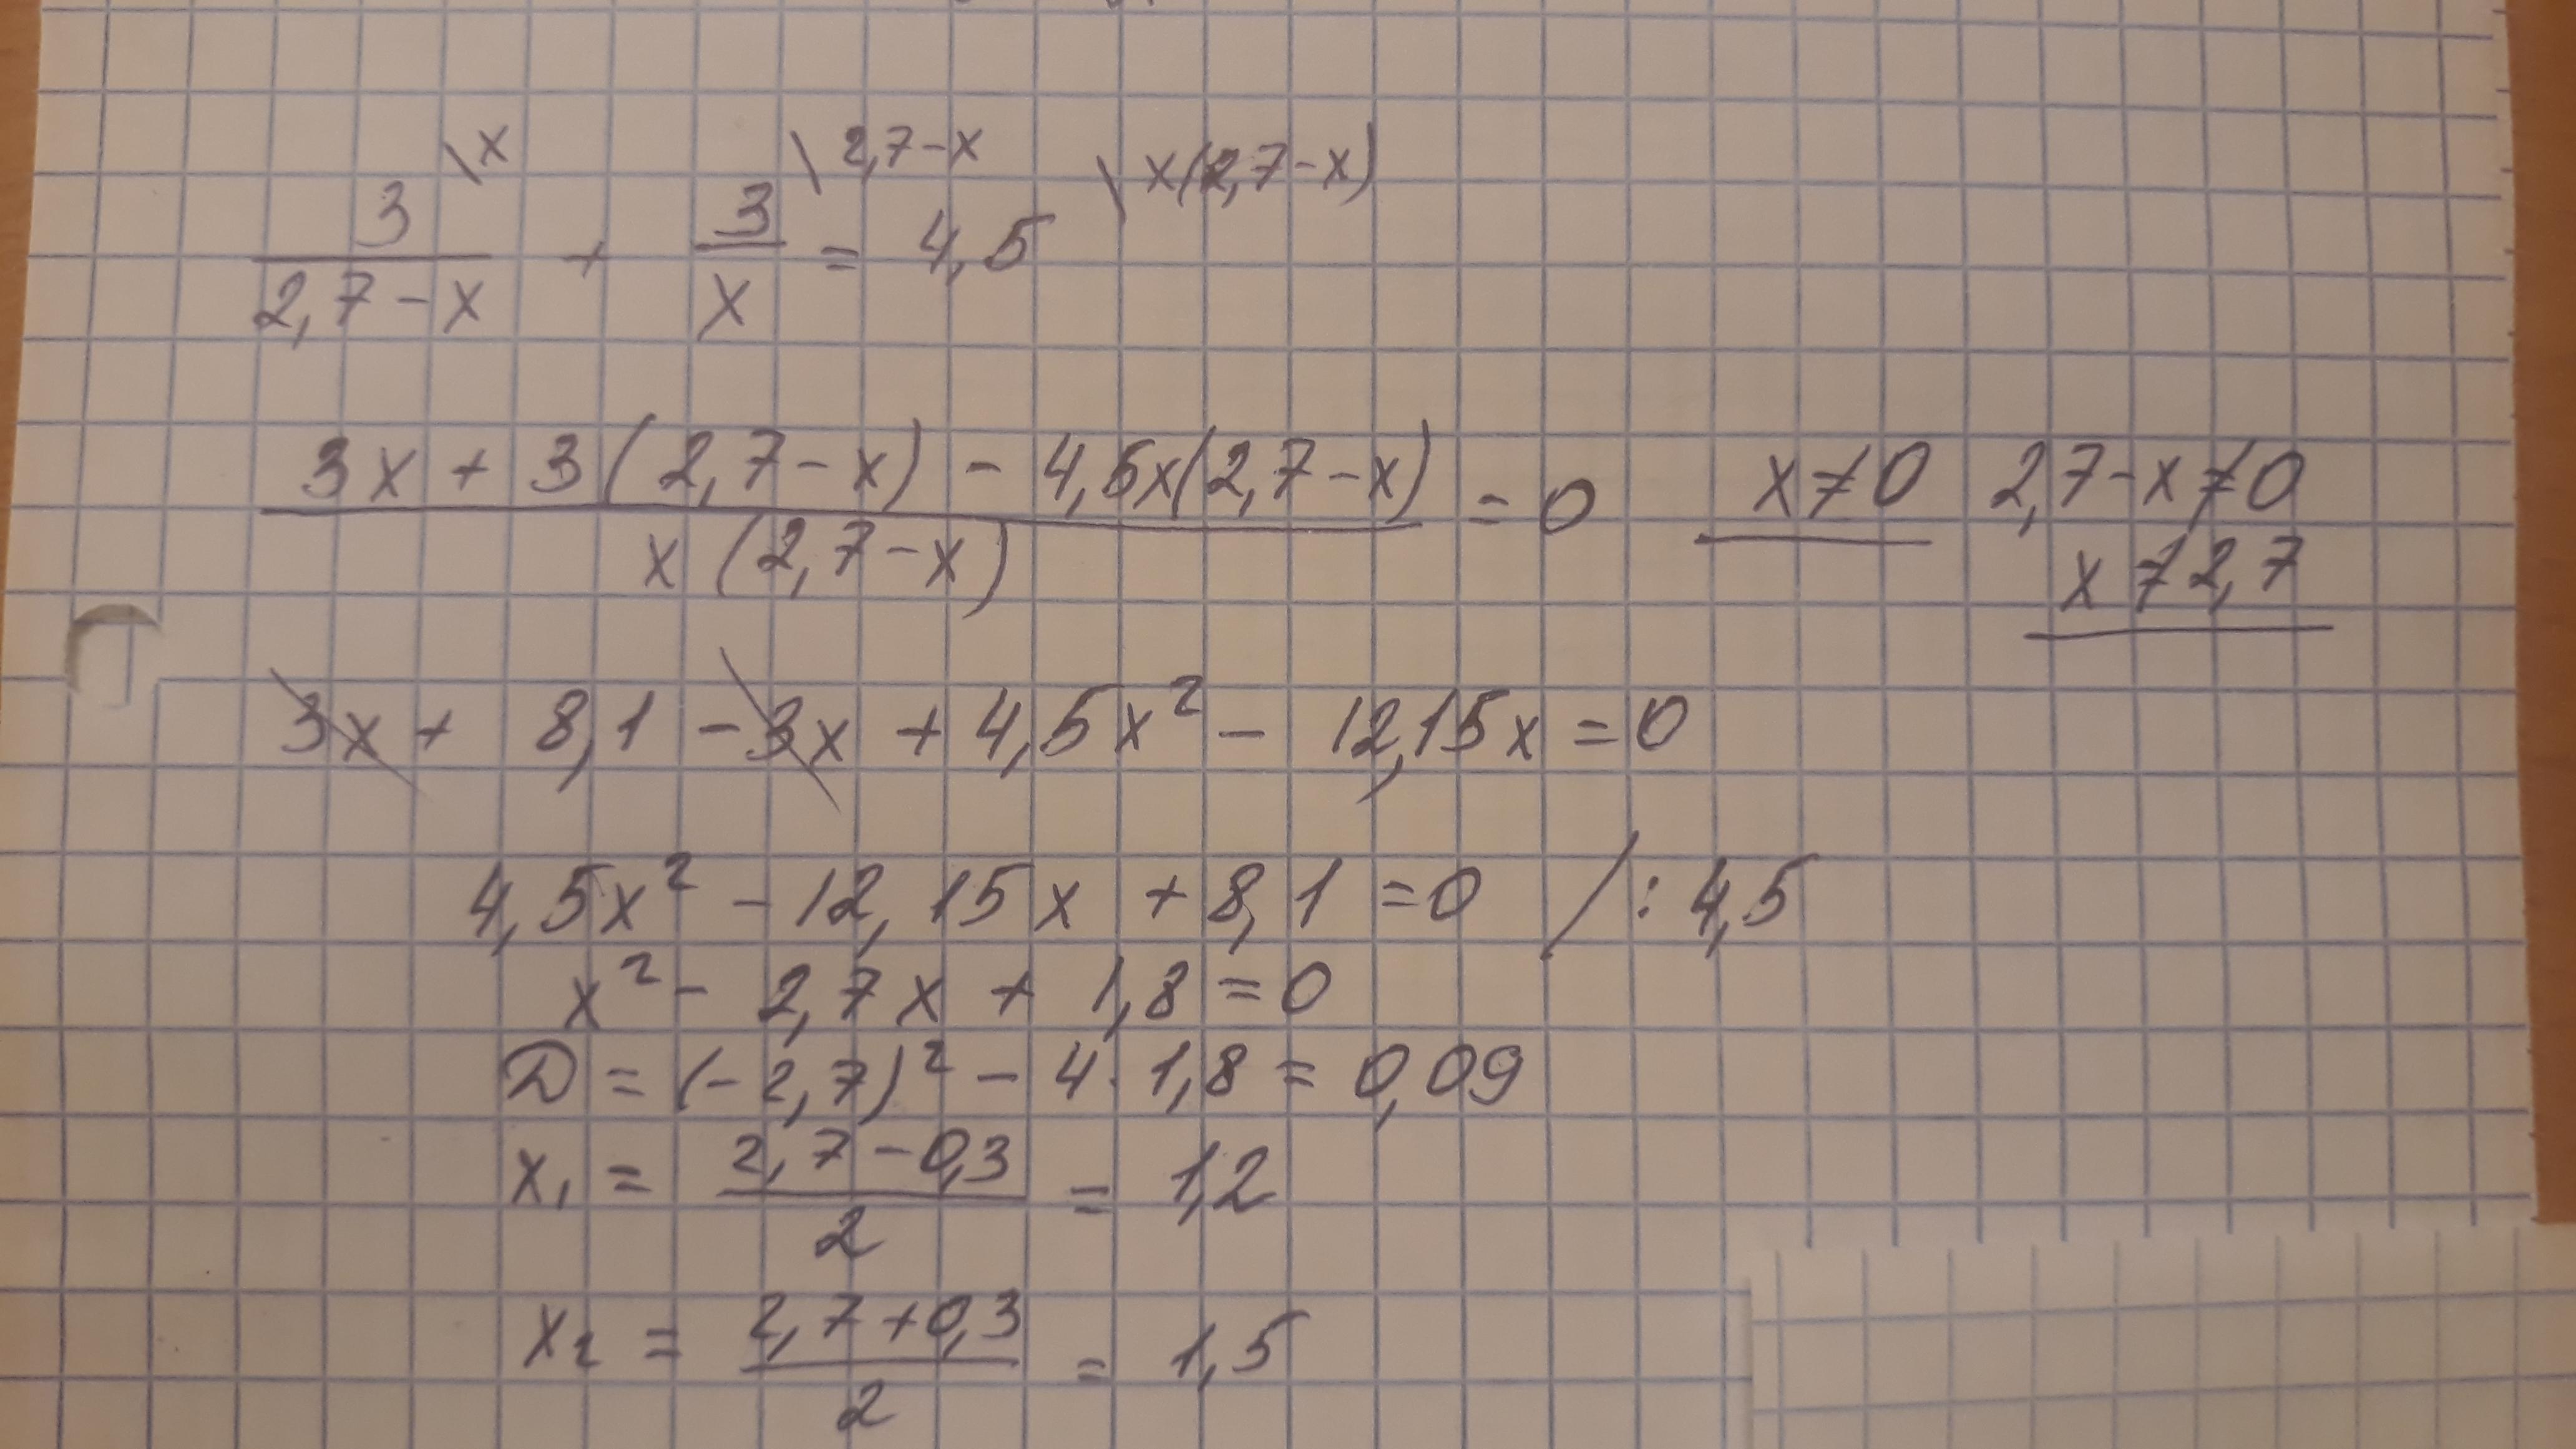 \x \2,7-x \x(2,7-x)
3/(2,7-x) + 3/x = 4,5
(3x + 3(2,7-x) - 4,5x(2,7-x))/(x(2,7-x)) = 0 x≠0 2,7-x≠0
x≠2,7
3x + 8,1 - 3x + 4,5x² - 12,15x = 0
4,5x² - 12,15x + 8,1 = 0 /: 4,5
x² - 2,7x + 1,8 = 0
D = (-2,7)² - 4·1,8 = 0,09
x₁ = (2,7-0,3)/2 = 1,2
x₂ = (2,7+0,3)/2 = 1,5